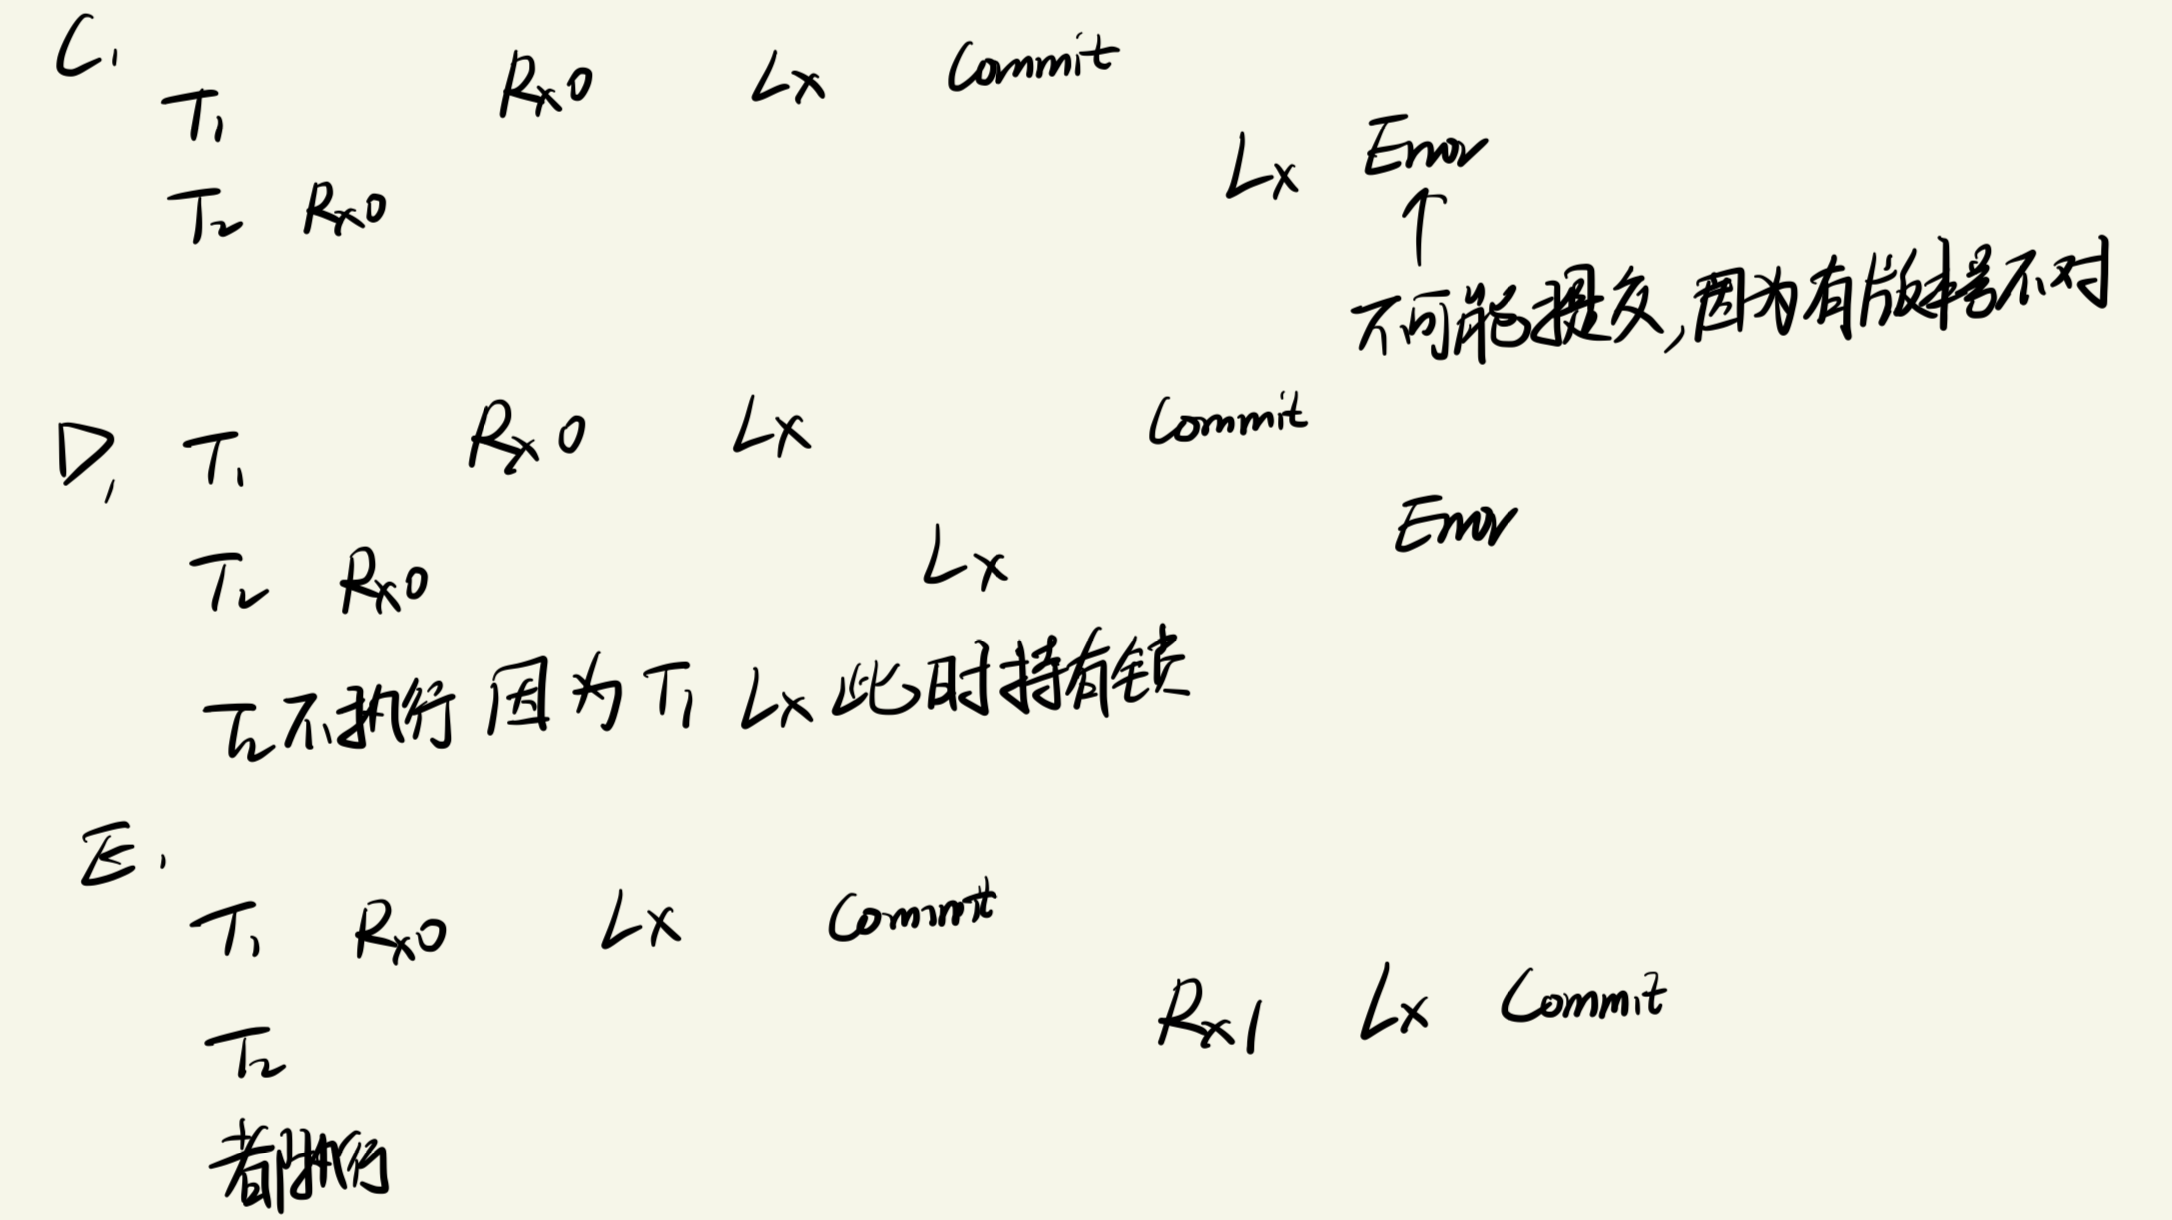 C.
T₁ Rx0 Lx Commit
T₂ Rx0 Lx Error
↑
不可能提交,因为有版本号不对
D, T₁ Rx0 Lx Commit
T₂ Rx0 Lx Error
T₂不执行 因为 T₁ Lx 此时持有锁
E.
T₁ Rx0 Lx Commit
T₂ Rx1 Lx Commit
都执行